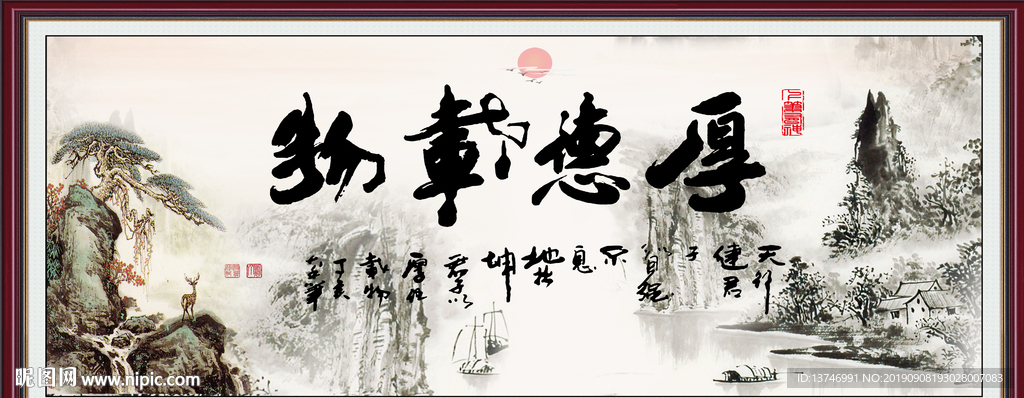 厚德載物
天行
健君
子
以自强
不
息
地势
坤
君子以
厚德
載物
丁亥
昵图网 www.nipic.com
ID:13746991 NO:20190908193028007083